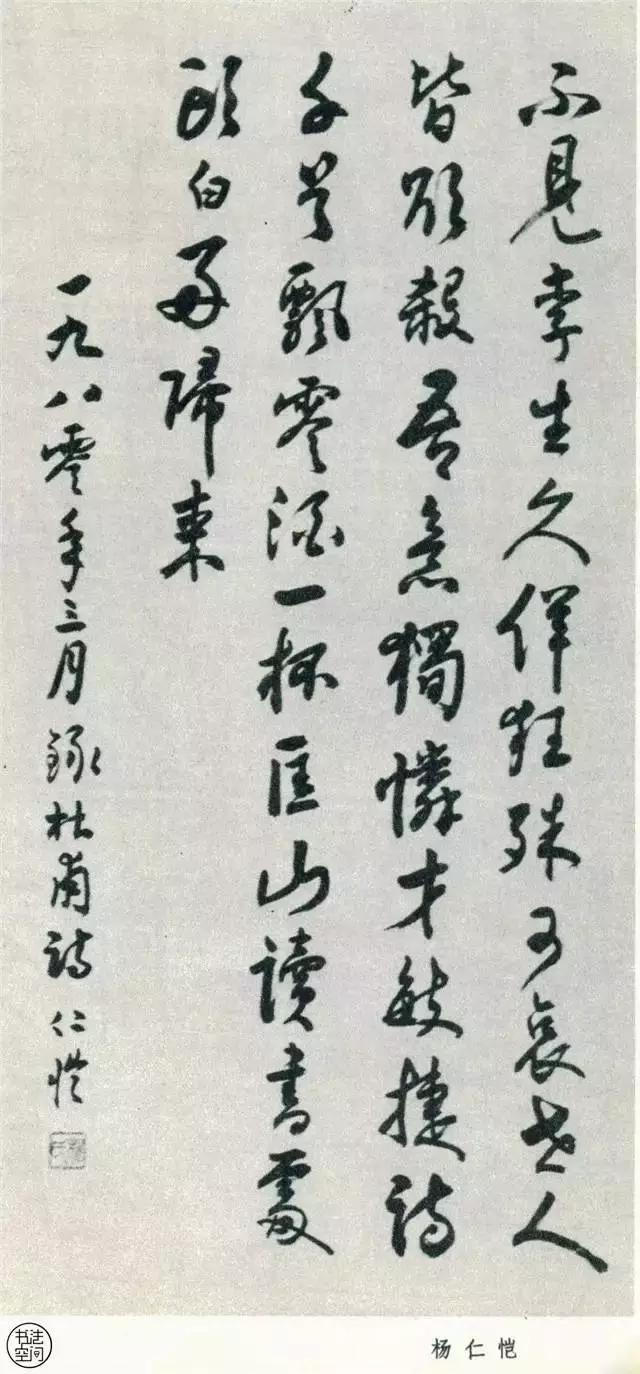 不見李生久佯狂殊可哀世人
皆欲殺吾意獨憐才敏捷詩
千首飄零酒一杯匡山讀書處
頭白好歸來
一九八零年三月録杜甫詩仁愷
杨仁恺
书法空间